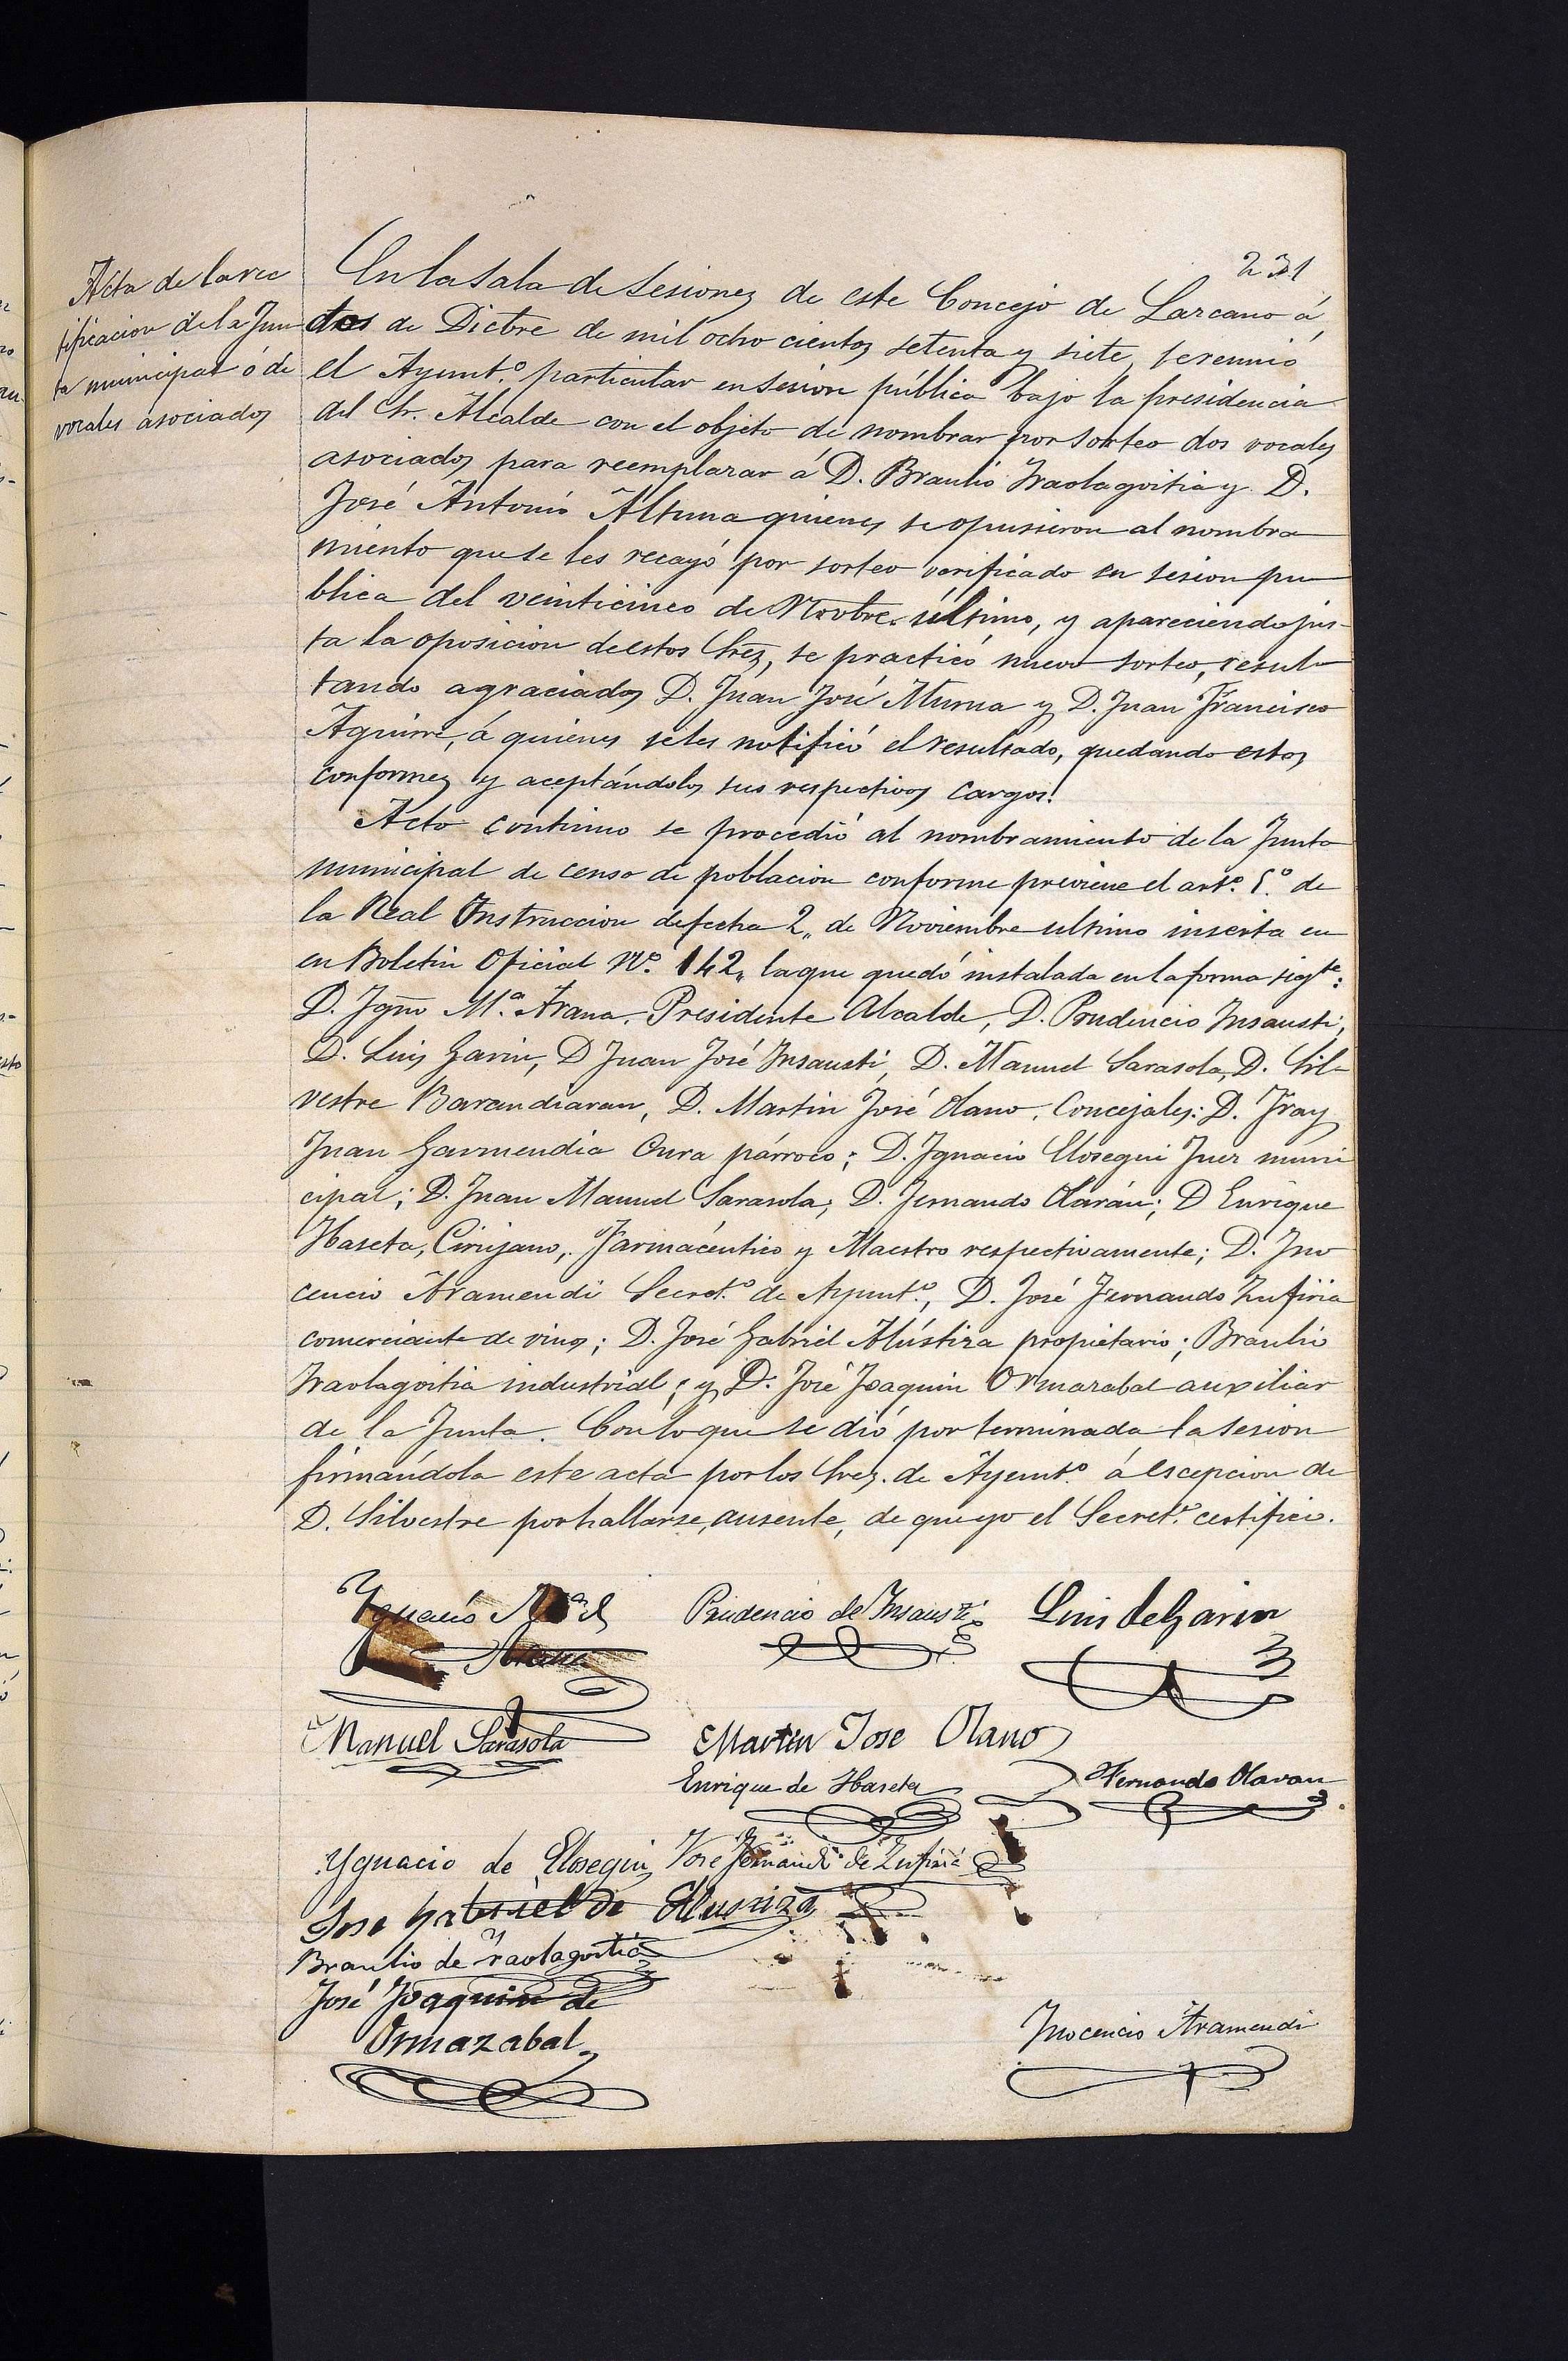 231
Acta de la rec
tificacion de la Jun
ta municipal ó de
vocales asociados
En la Sala de Sesiones de este Concejo de Lazcano á
dos de Dictre de mil ocho cientos setenta y siete, se reunió
el Ayunt.º particular en sesion pública bajo la presidencia
del Sr. Alcalde con el objeto de nombrar por sorteo dos vocales
asociados para reemplazar á D. Braulio Yraolagoitia y D.
José Antonio Altuna quienes se opusieron al nombra
miento que se les recayó por sorteo verificado en sesion pu
blica del veinticinco de Novbre. último, y apareciendo jus-
ta la oposicion de estos Sres, se practicó nuevo sorteo, resul
tando agraciados D. Juan José Murua y D. Juan Francisco
Aguirre, á quienes se les notificó el resultado, quedando estos
conformes y aceptándolos sus respectivos cargos.
Acto continuo se procedió al nombramiento de la Junta
municipal de censo de poblacion conforme previene el artº. 5.º de
la Real Instruccion de fecha 2,, de Noviembre ultimo inserta en
en Boletin Oficial Nº. 142,, la que quedó instalada en la forma sigte:
D. Ygno Mª. Arana, Presidente Alcalde, D. Prudencio Insausti,
D. Luis Garin, D Juan José Insausti, D. Manuel Sarasola, D. Sil-
vestre Barandiaran, D. Martin José Olano, Concejales: D. Fray
Juan Garmendia Cura párroco; D. Ygnacio Elosegui Juez muni
cipal; D. Juan Manuel Sarasola; D. Fernando Olarán; D Enrique
Ybaseta, Cirujano, Farmacéutico y Maestro respectivamente; D. Ino
cencio Aramendi Secretº. de Ayuntº., D. José Fernando Zufiria
comerciante de vinos; D. José Gabriel Alústiza propietario; Braulio
Yraolagoitia industrial; y D. José Joaquin Ormazabal auxiliar
de la Junta. Con lo que se dió por terminada la sesion
firmándola este acta por los Sres. de Ayuntº. á escepcion de
D. Silvestre por hallarse ausente, de que yo el Secretº. certifico.
Ygnacio Mª de
Arana
Prudencio de Insausti
Luis de Garin
Manuel Sarasola
Martin Jose Olano
Enrique de Ybaseta
Fernando Olaran
Ygnacio de Elosegui
José Fernando de Zufiria
Jose Gabriel de Alustiza
Braulio de Yraolagoitia
José Joaquin de
Ormazabal
Inocencio Aramendi